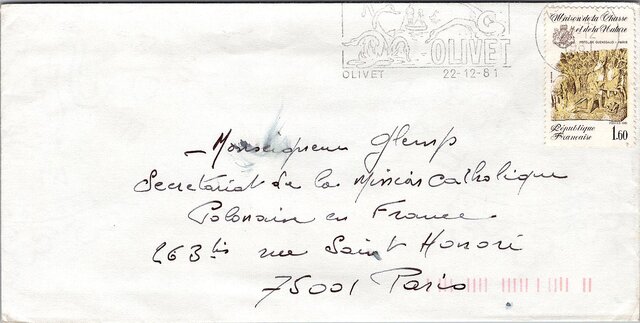 OLIVET
OLIVET 22-12-81
Maison de la Chasse
et de la Nature
HOTEL DE GUENEGAUD - PARIS
République
Française 1,60
Monseigneur Glemp
Secretariat de la Mission Catholique
Polonaise en France
263 bis rue Saint Honoré
75001 Paris